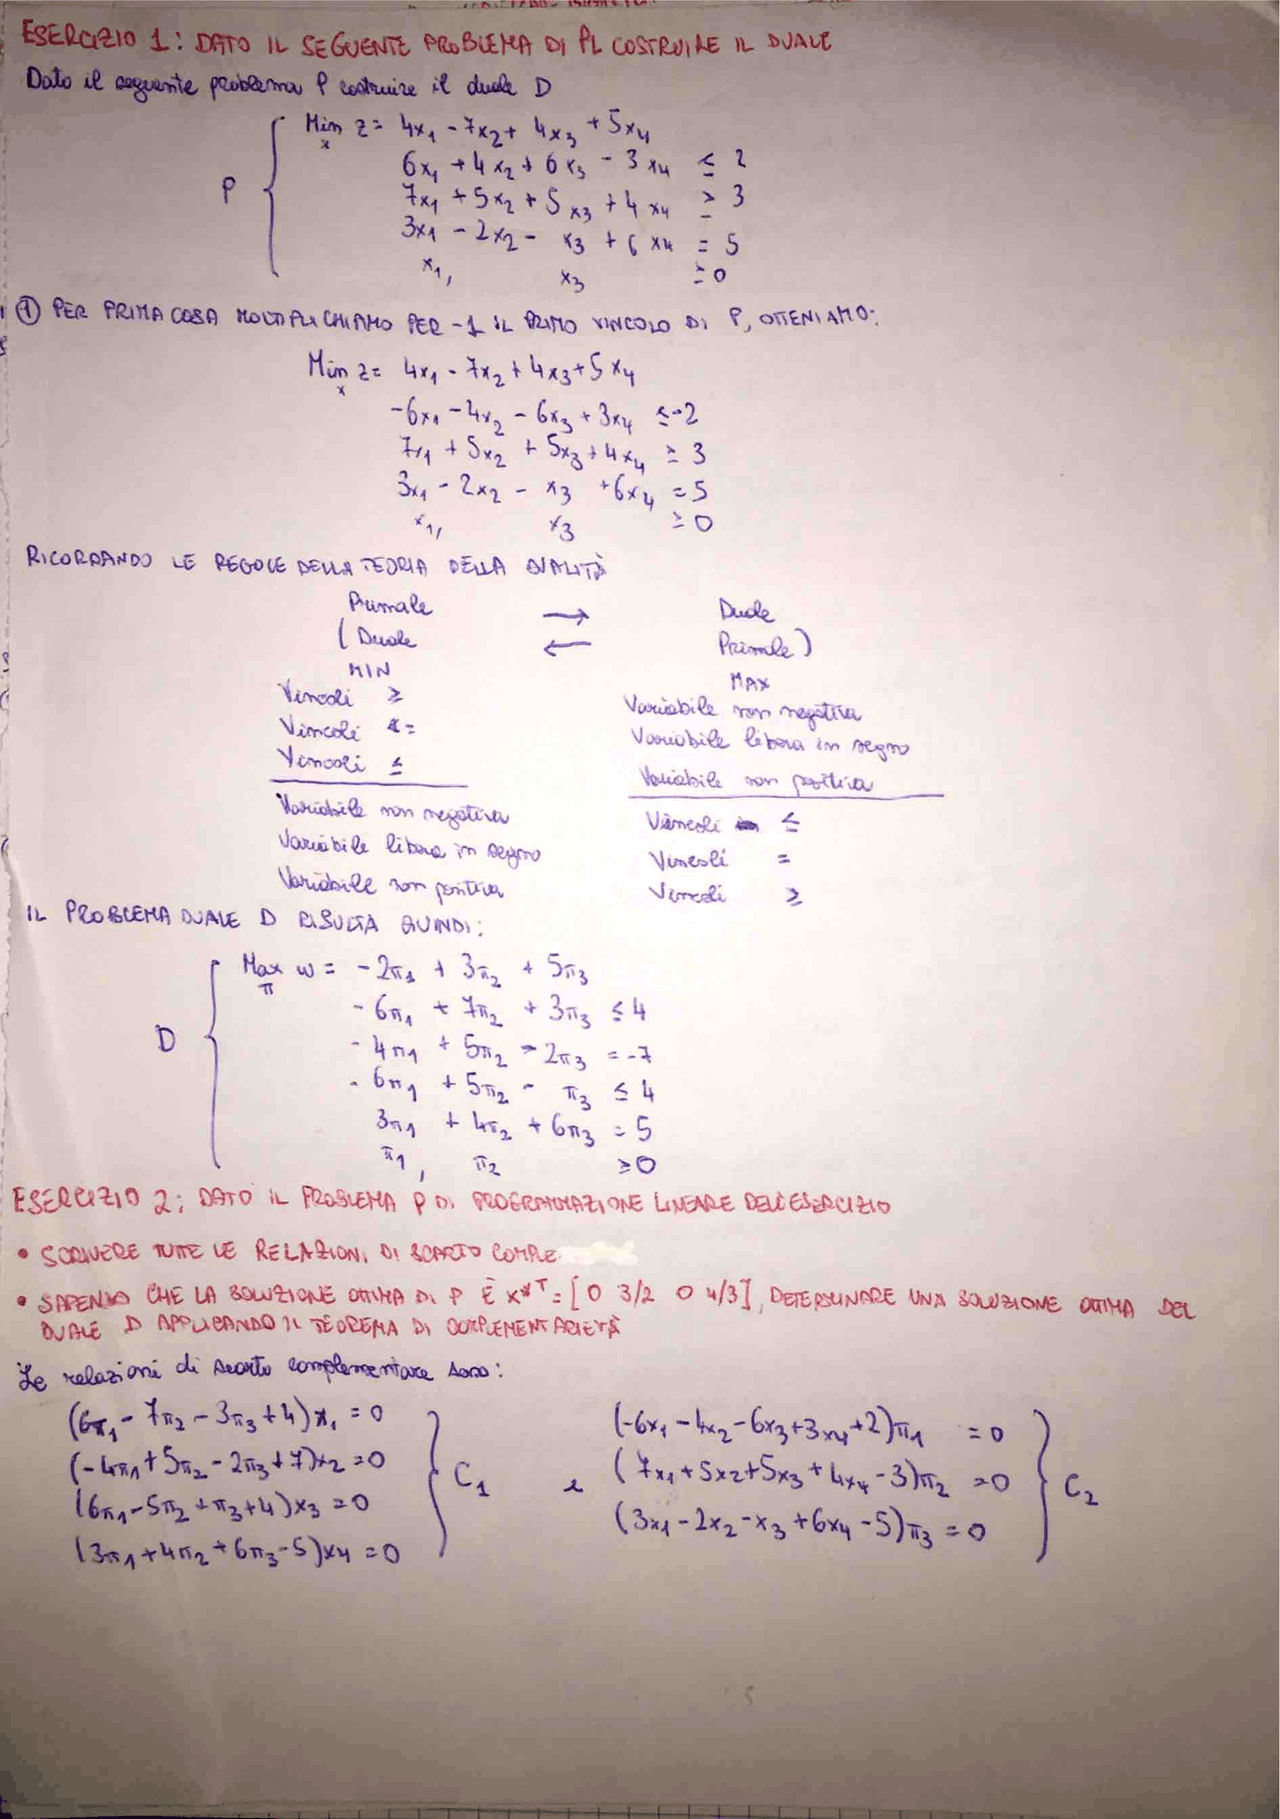 ESERCIZIO 1: DATO IL SEGUENTE PROBLEMA DI PL COSTRUIRE IL DUALE
Dato il seguente problema P costruire il duale D
P { Min x z = 4x1 - 7x2 + 4x3 + 5x4
6x1 + 4x2 + 6x3 - 3x4 ≤ 2
7x1 + 5x2 + 5x3 + 4x4 ≥ 3
3x1 - 2x2 - x3 + 6x4 = 5
x1, x3 ≥ 0
① PER PRIMA COSA MOLTIPLICHIAMO PER -1 IL PRIMO VINCOLO DI P, OTTENIAMO:
Min x z = 4x1 - 7x2 + 4x3 + 5x4
-6x1 - 4x2 - 6x3 + 3x4 ≤ -2
7x1 + 5x2 + 5x3 + 4x4 ≥ 3
3x1 - 2x2 - x3 + 6x4 = 5
x1, x3 ≥ 0
RICORDANDO LE REGOLE DELLA TEORIA DELLA DUALITÀ
Primale → Duale
(Duale ← Primale)
MIN MAX
Vincoli ≥ Variabile non negativa
Vincoli = Variabile libera in segno
Vincoli ≤ Variabile non positiva
Variabile non negativa Vincoli ≤
Variabile libera in segno Vincoli =
Variabile non positiva Vincoli ≥
IL PROBLEMA DUALE D RISULTA QUINDI:
D { Max π w = -2π1 + 3π2 + 5π3
-6π1 + 7π2 + 3π3 ≤ 4
-4π1 + 5π2 - 2π3 = -7
-6π1 + 5π2 - π3 ≤ 4
3π1 + 4π2 + 6π3 = 5
π1, π2 ≥ 0
ESERCIZIO 2: DATO IL PROBLEMA P DI PROGRAMMAZIONE LINEARE DELL'ESERCIZIO
• SCRIVERE TUTTE LE RELAZIONI DI SCARTO COMPLE
• SAPENDO CHE LA SOLUZIONE OTTIMA DI P È x*T = [0 3/2 0 4/3], DETERMINARE UNA SOLUZIONE OTTIMA DEL
DUALE D APPLICANDO IL TEOREMA DI COMPLEMENTARIETÀ
Le relazioni di scarto complementare sono:
(6π1 - 7π2 - 3π3 + 4)x1 = 0 (-6x1 - 4x2 - 6x3 + 3x4 + 2)π1 = 0
(-4π1 + 5π2 - 2π3 + 7)x2 = 0 } C1 e (7x1 + 5x2 + 5x3 + 4x4 - 3)π2 = 0 } C2
(6π1 - 5π2 + π3 + 4)x3 = 0 (3x1 - 2x2 - x3 + 6x4 - 5)π3 = 0
(3π1 + 4π2 + 6π3 - 5)x4 = 0